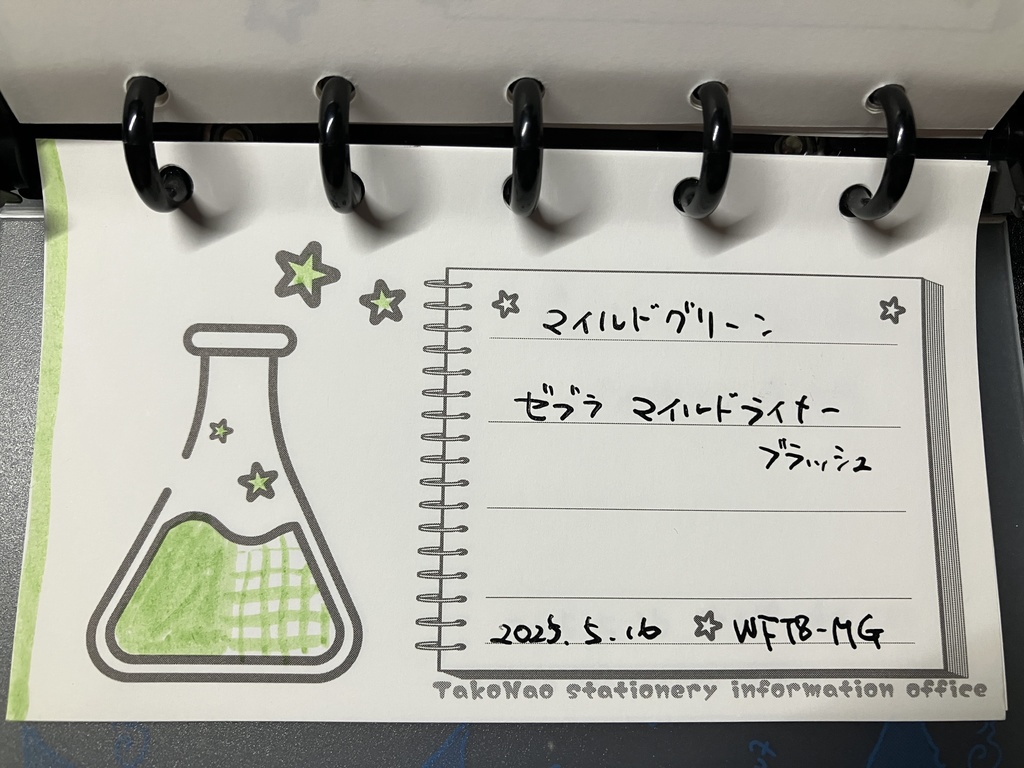 マイルドグリーン
ゼブラ マイルドライナー
ブラッシュ
2025.5.16 WFT8-MG
TakoNao stationery information office